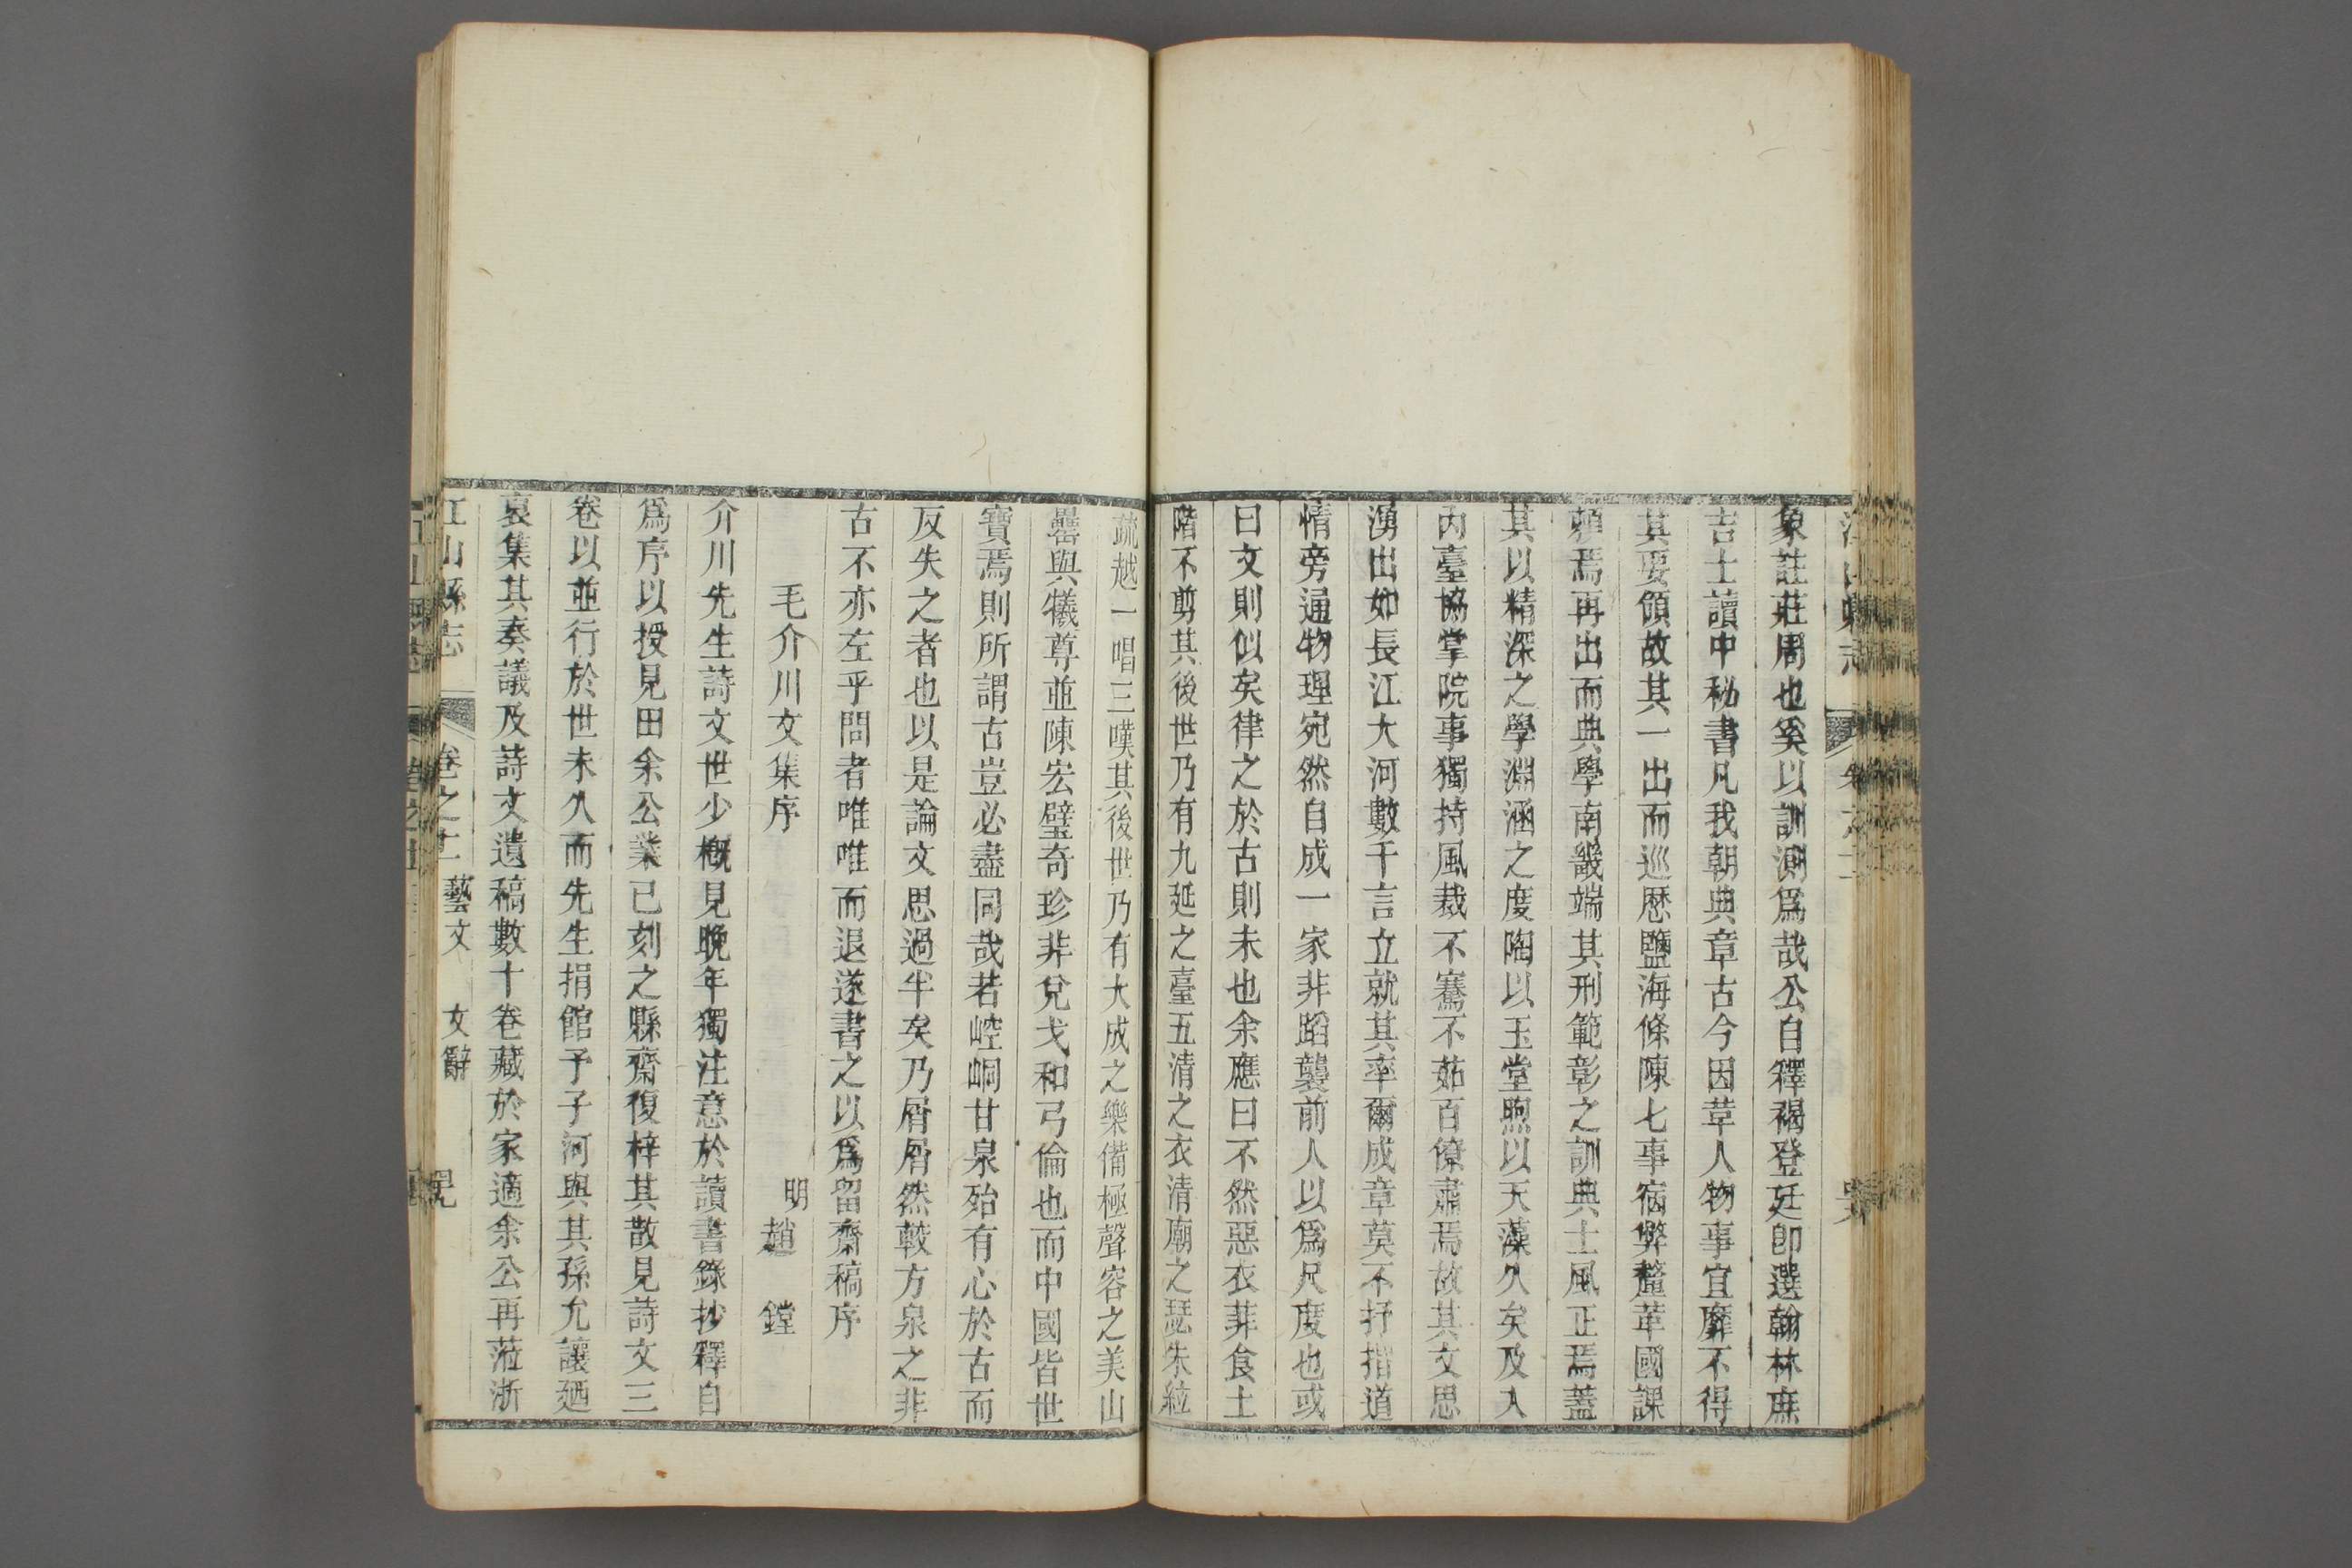 象註莊周也奚以訓測爲哉公自釋褐登廷卽選翰林庶
吉士讀中秘書凡我朝典章古今因革人物事宜靡不得
其要領故其一出而巡歷鹽海條陳七事宿弊釐革國課
賴焉再出而典學南畿端其刑範彰之訓典士風正焉蓋
其以精深之學淵涵之度陶以玉堂煦以天藻久矣及入
內臺協掌院事獨持風裁不騫不茹百僚肅焉故其文思
湧出如長江大河數千言立就其率爾成章莫不抒指道
情旁通物理宛然自成一家非蹈襲前人以爲尺度也或
曰文則似矣律之於古則未也余應曰不然惡衣菲食土
階不剪其後世乃有九延之臺五清之衣清廟之瑟朱絃
疏越一唱三嘆其後世乃有大成之樂備極聲容之美山
罍與犧尊並陳宏璧奇珍非兌戈和弓倫也而中國皆世
寶焉則所謂古豈必盡同哉若崆峒甘泉殆有心於古而
反失之者也以是論文思過半矣乃屑屑然較方泉之非
古不亦左乎問者唯唯而退遂書之以爲留齋稿序
毛介川文集序
明趙鏜
介川先生詩文世少槪見晚年獨注意於讀書錄抄釋自
爲序以授見田余公業已刻之縣齋復梓其散見詩文三
卷以並行於世未久而先生捐館予子河與其孫允讓廼
裒集其奏議及詩文遺稿數十卷藏於家適余公再蒞浙
江山縣志 卷之十一 藝文 文辭